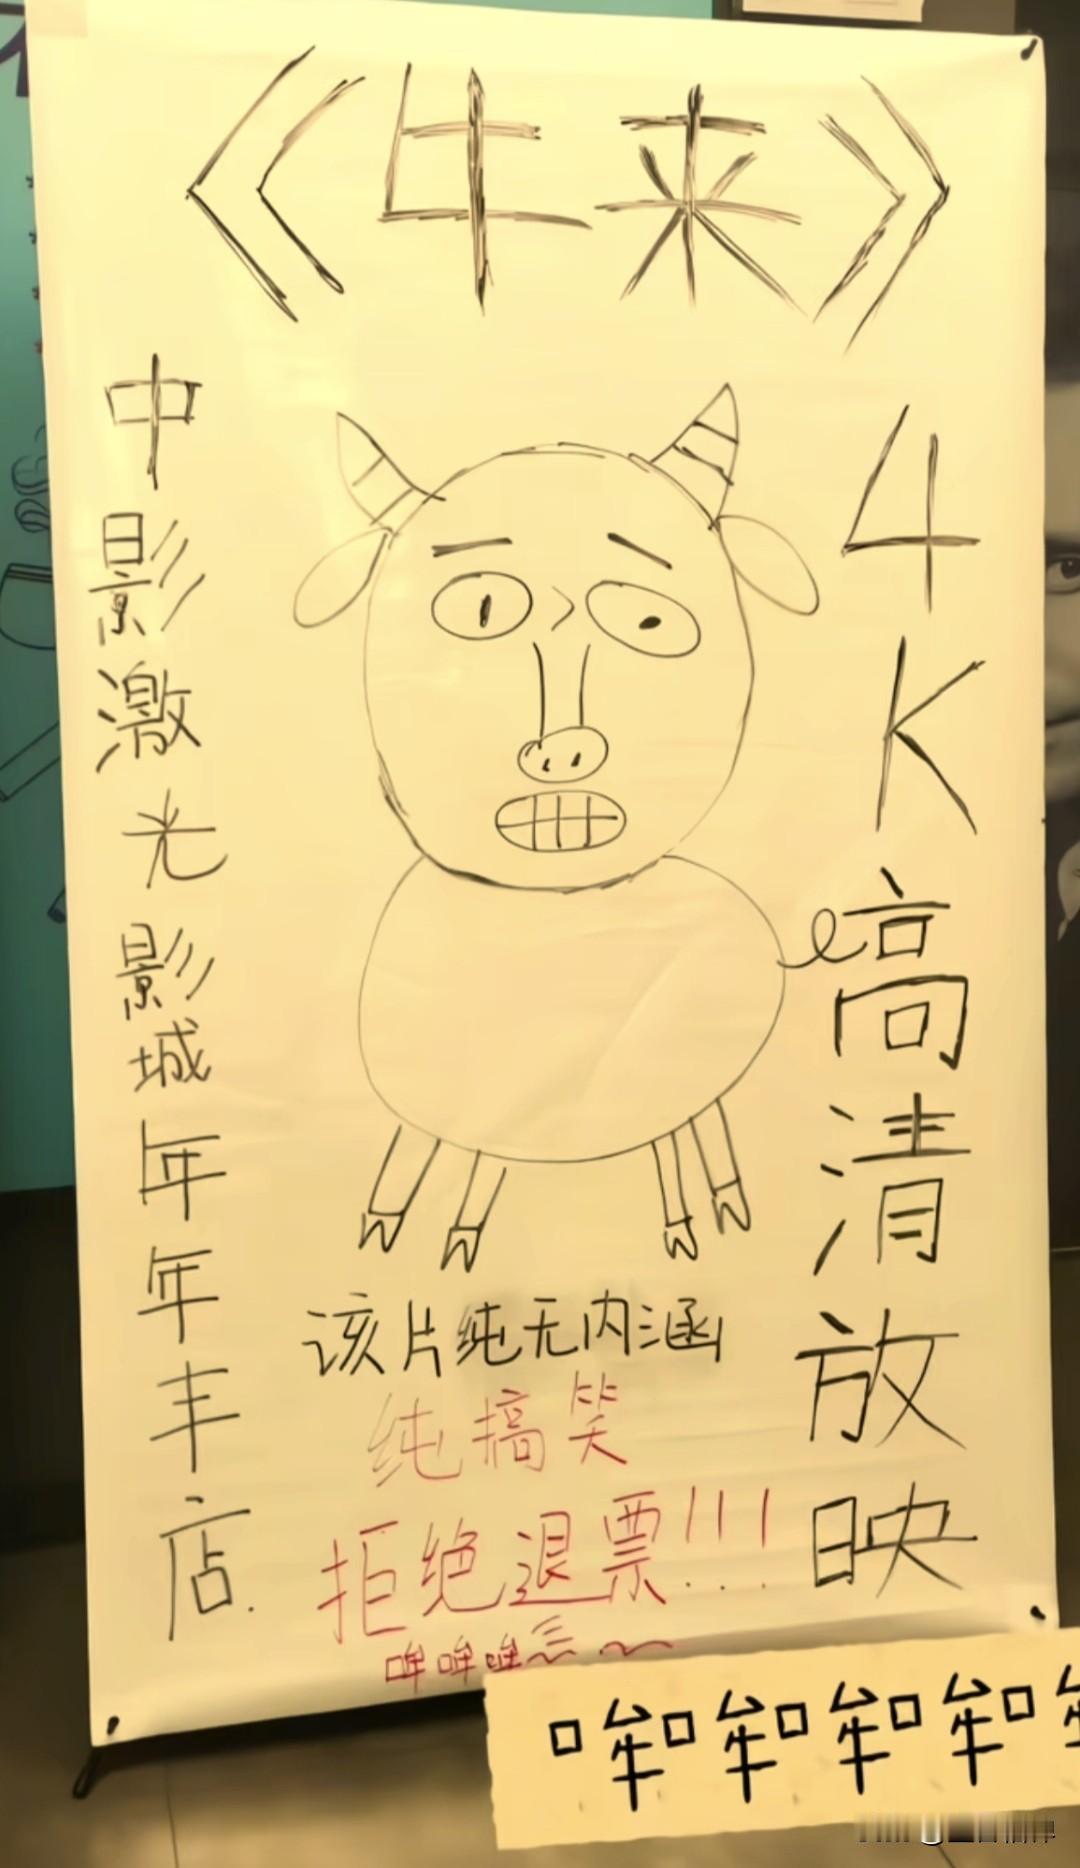 《牛来》
中影激光影城年年丰店.
4K高清放映
该片纯无内涵
纯搞笑
拒绝退票!!!
哞哞哞
哞哞哞哞